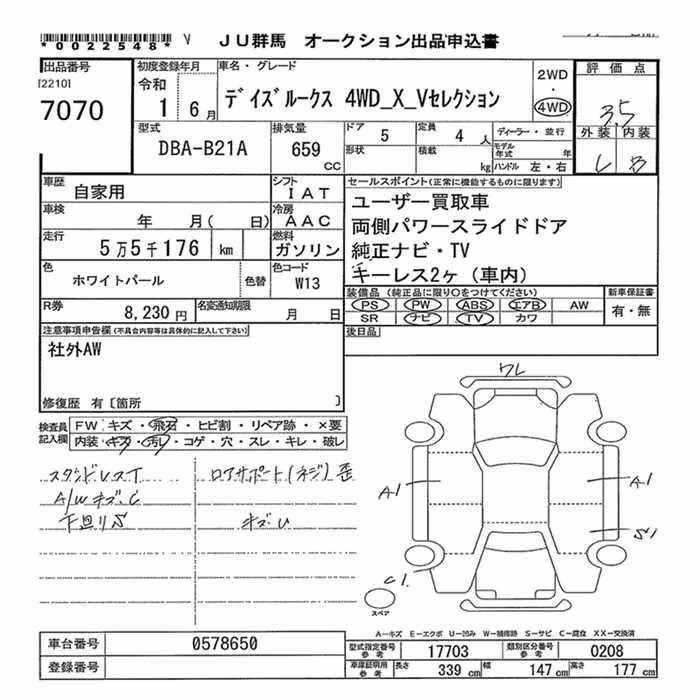 *0022548* V JU群馬 オークション出品申込書
出品番号
[2210]
7070
初度登録年月
令和
1 6月
車名・グレード
デイズルークス 4WD_X_Vセレクション
2WD
・
4WD
評価点
3.5
外装 内装
B
型式
DBA-B21A
排気量
659 CC
ドア 5
定員 4 人
形状
積載 kg
ディーラー・並行
モデル年式 年
ハンドル 左・右
車歴
自家用
シフト
IAT
車検
年 月( 日)
冷房
AAC
走行
5万5千176 km
燃料
ガソリン
色
ホワイトパール
色替
色コード
W13
R券
8,230円
名変通知期限
月 日
セールスポイント(正常に機能するものに限ります)
ユーザー買取車
両側パワースライドドア
純正ナビ・TV
キーレス2ヶ(車内)
装備品(純正品に限り○をつけてください)
PS PW ABS エアB AW
SR ナビ TV カワ
新車保証書
有・無
後日品
注意事項申告欄(不具合内容等は具体的に記入して下さい)
社外AW
修復歴 有〔箇所 〕
検査員
記入欄
FW・キズ・飛石・ヒビ割・リペア跡・×要
内装・キズ・汚レ・コゲ・穴・スレ・キレ・破レ
スタッドレスT
A/WキズC
下回りS
ロアサポート(ネジ)歪
キズU
ワレ
A1
A1
S1
C1
スペア
A—キズ E—エクボ U—凹み W—補修跡 S—サビ C—腐食 XX—交換済
車台番号
0578650
登録番号
型式指定番号
参考
17703
類別区分番号
参考
0208
車庫証明用
参考
長さ 339 cm
幅 147 cm
高さ 177 cm